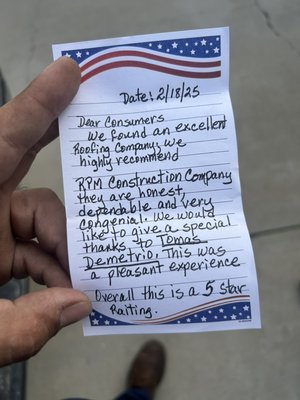 Date: 2/18/25
Dear Consumers
We found an excellent
Roofing Company, We
highly recommend
RPM Construction Company
they are honest,
dependable and very
congenial. We would
like to give a special
thanks to Tomas
Demetrio. This was
a pleasant experience
Overall this is a 5 star
Raiting.